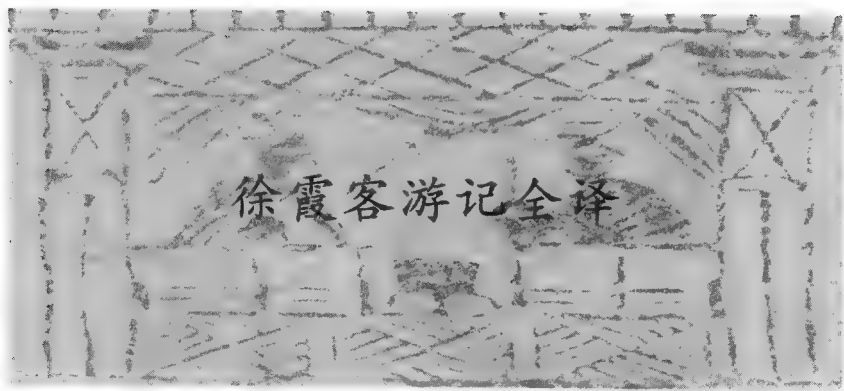 徐霞客游记全译